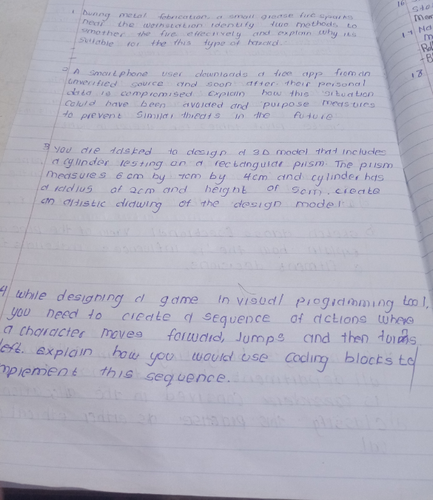 1. During metal fabrication a small grease fire sparks
near the workstation identify two methods to
smother the fire effectively and explain why its
suitable for the this type of hazard.
2 A smartphone user downloads a free app from an
unverified source and soon after their personal
data is compromised. Explain how this situation
could have been avoided and purpose measures
to prevent similar threats in the future
3 you are tasked to design a 3D model that includes
a cylinder resting on a rectangular prism. The prism
measures 6cm by 4cm by 4cm and cylinder has
a radius of 2cm and height of 5cm. create
an artistic drawing of the design model
4 while designing a game in visual programming tool,
you need to create a sequence of actions where
a character moves forward, Jumps and then turns
left. explain how you would use coding blocks to
mplement this sequence.
16
17
18